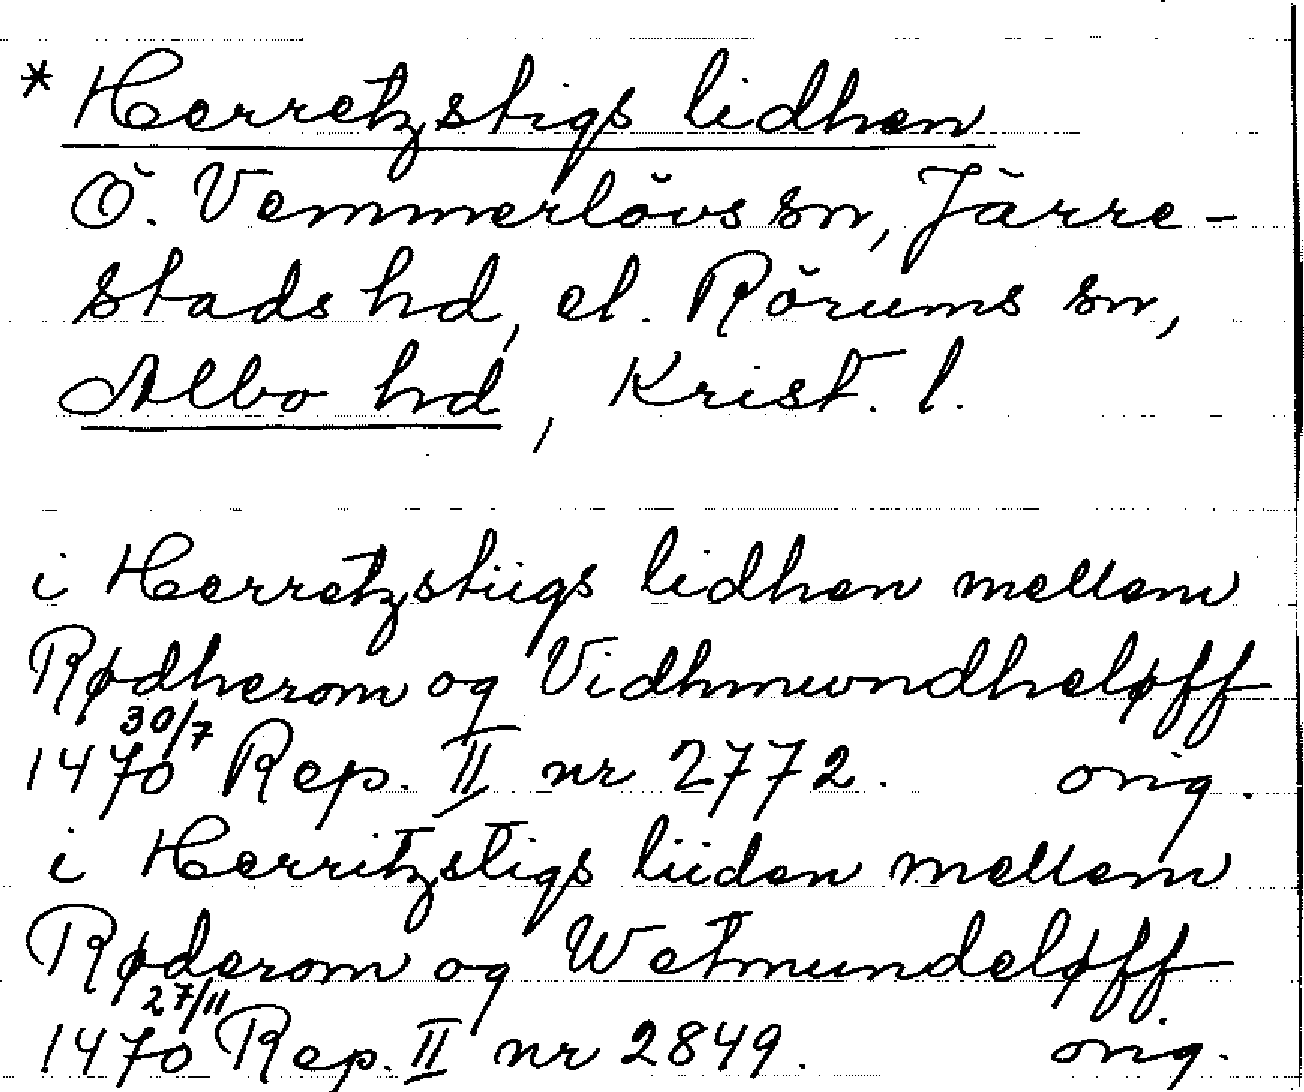 * Herretzstigs lidhen
Ö. Vemmerlövs sn, Järre-
stads hd, el. Rörums sn,
Albo hd, Krist. l.
i Herretzstiigs lidhen mellem
Rødherom og Vidhmwndheløff
30/7
1470 Rep. II nr 2772. orig.
i Herritzstigs liiden mellem
Røderom og Wetmundeløff
27/11
1470 Rep. II nr 2849. orig.